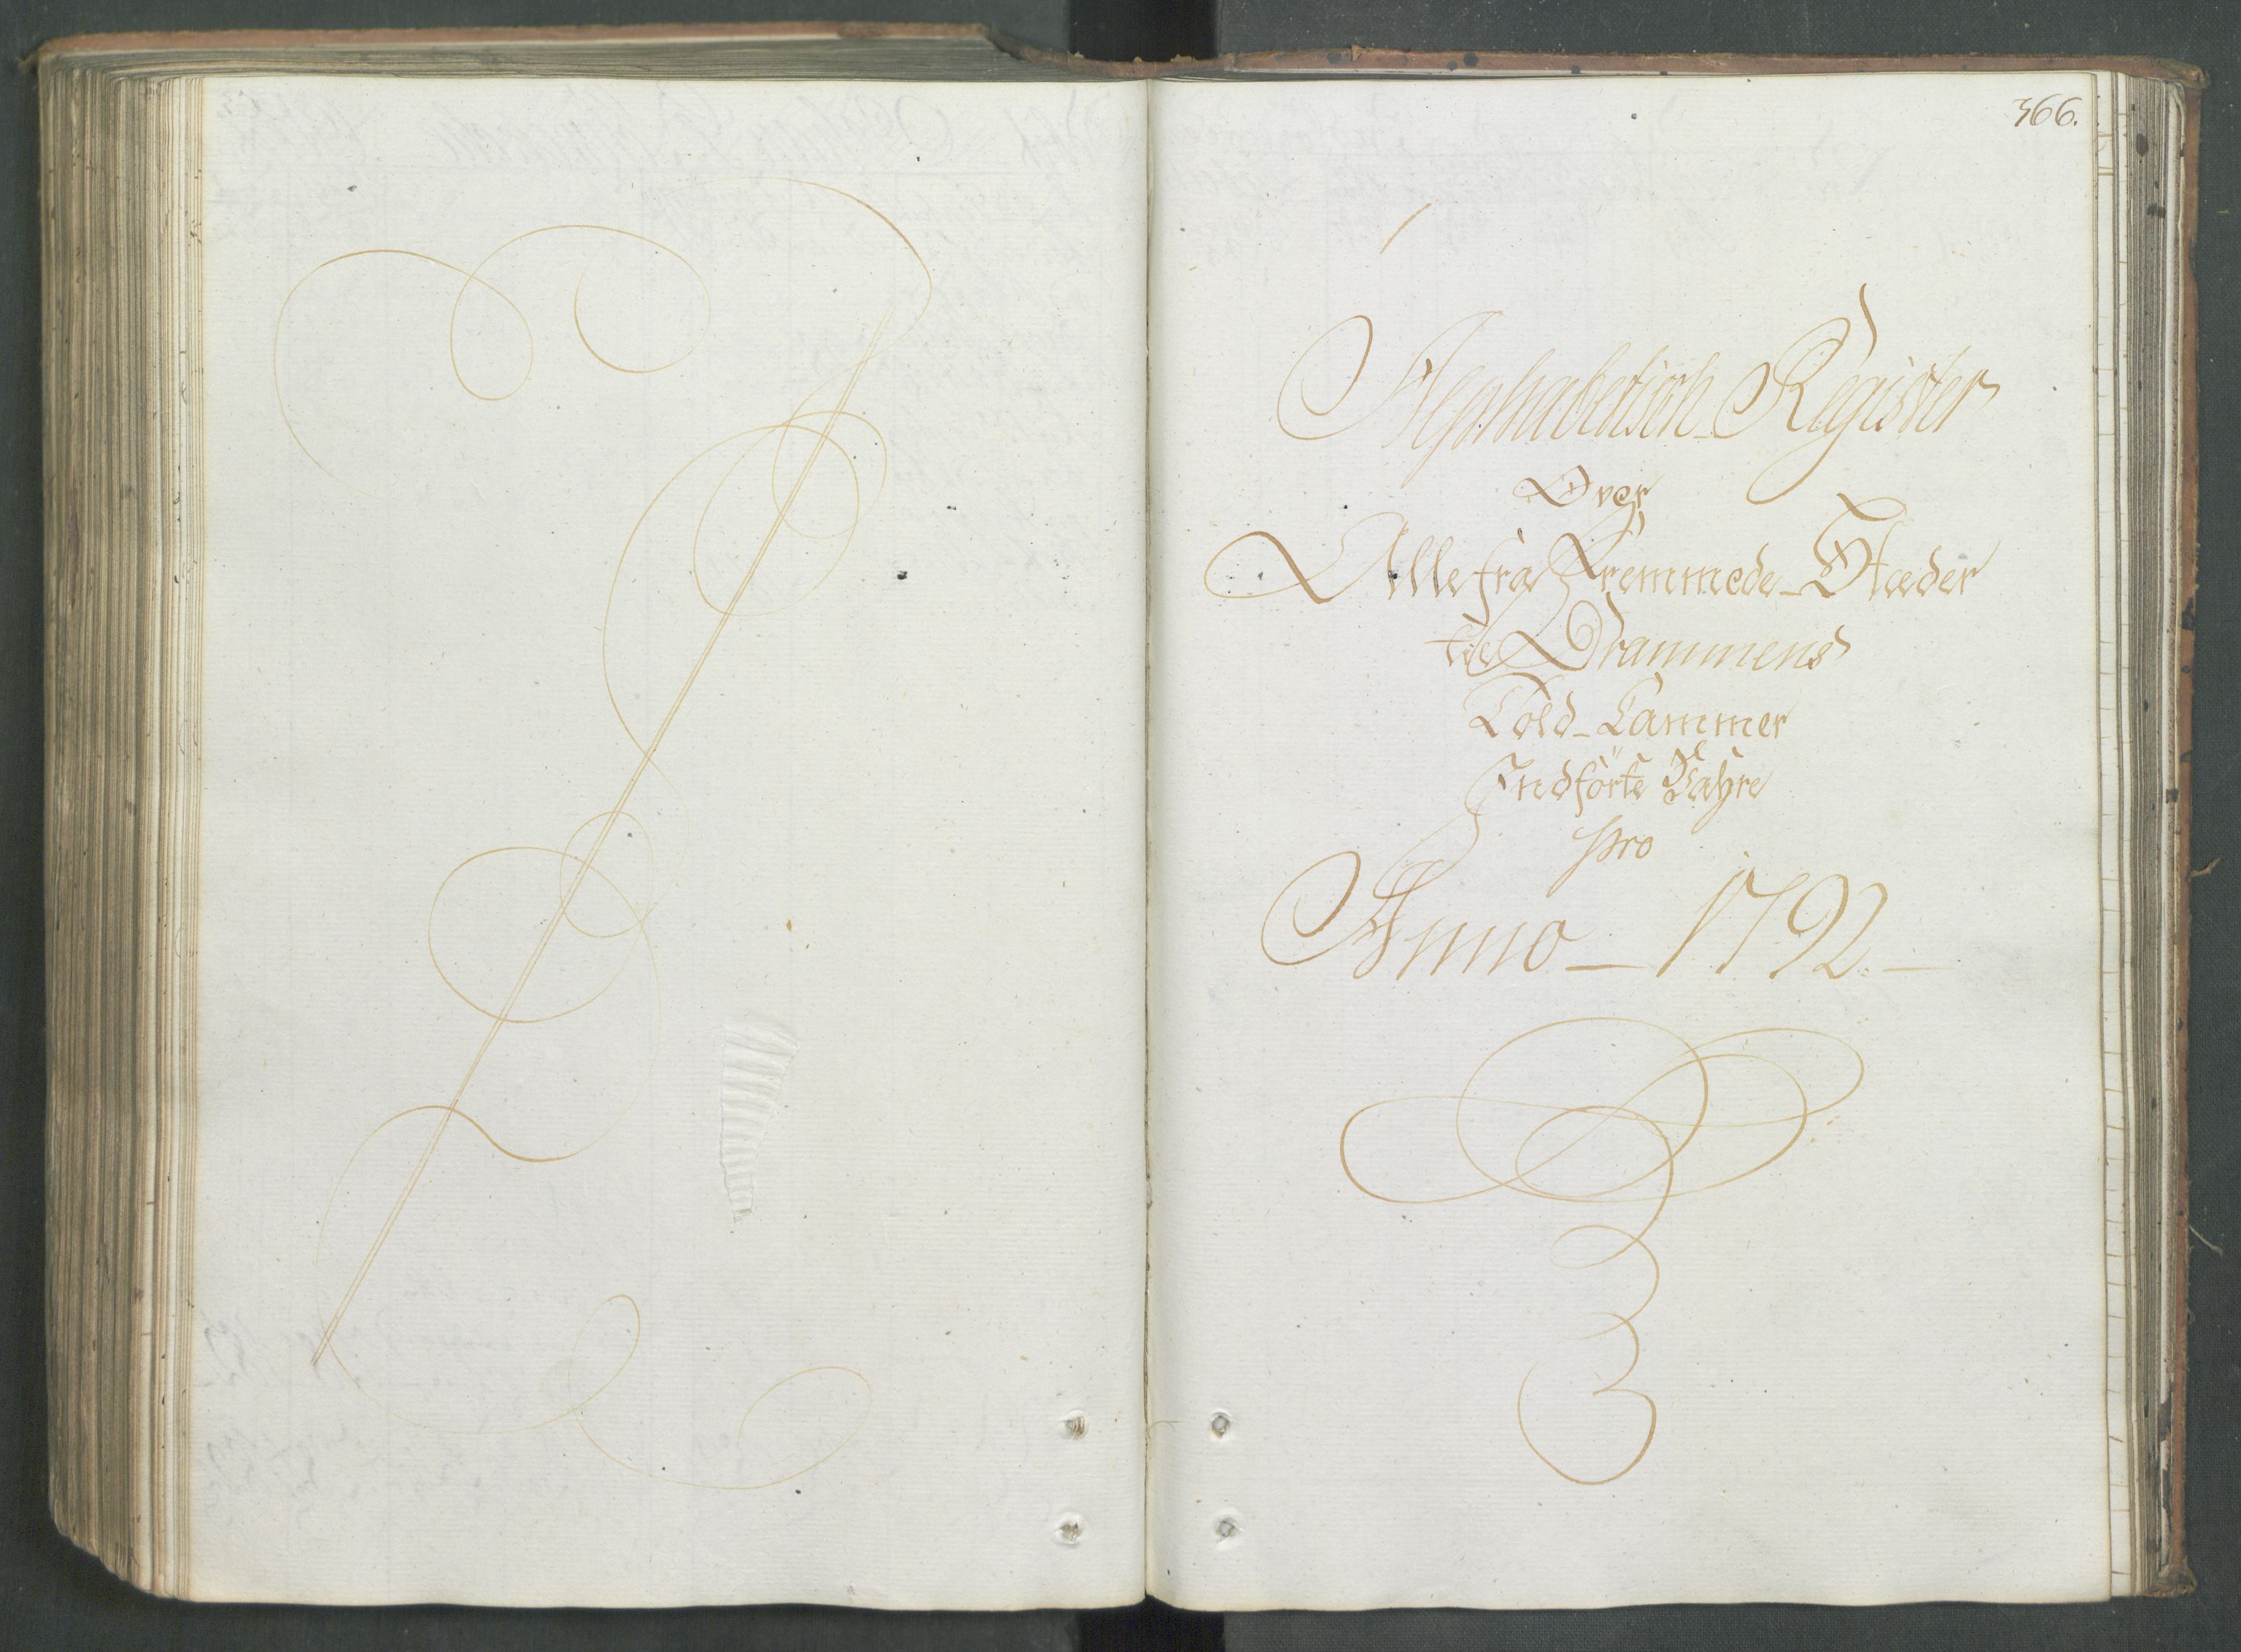 366.
Alphabetisch Register
Over
Alle fra Fremmede Stæder
til Drammens
Told-Cammer
Indförte Vahre
pro
Anno - 1792. -